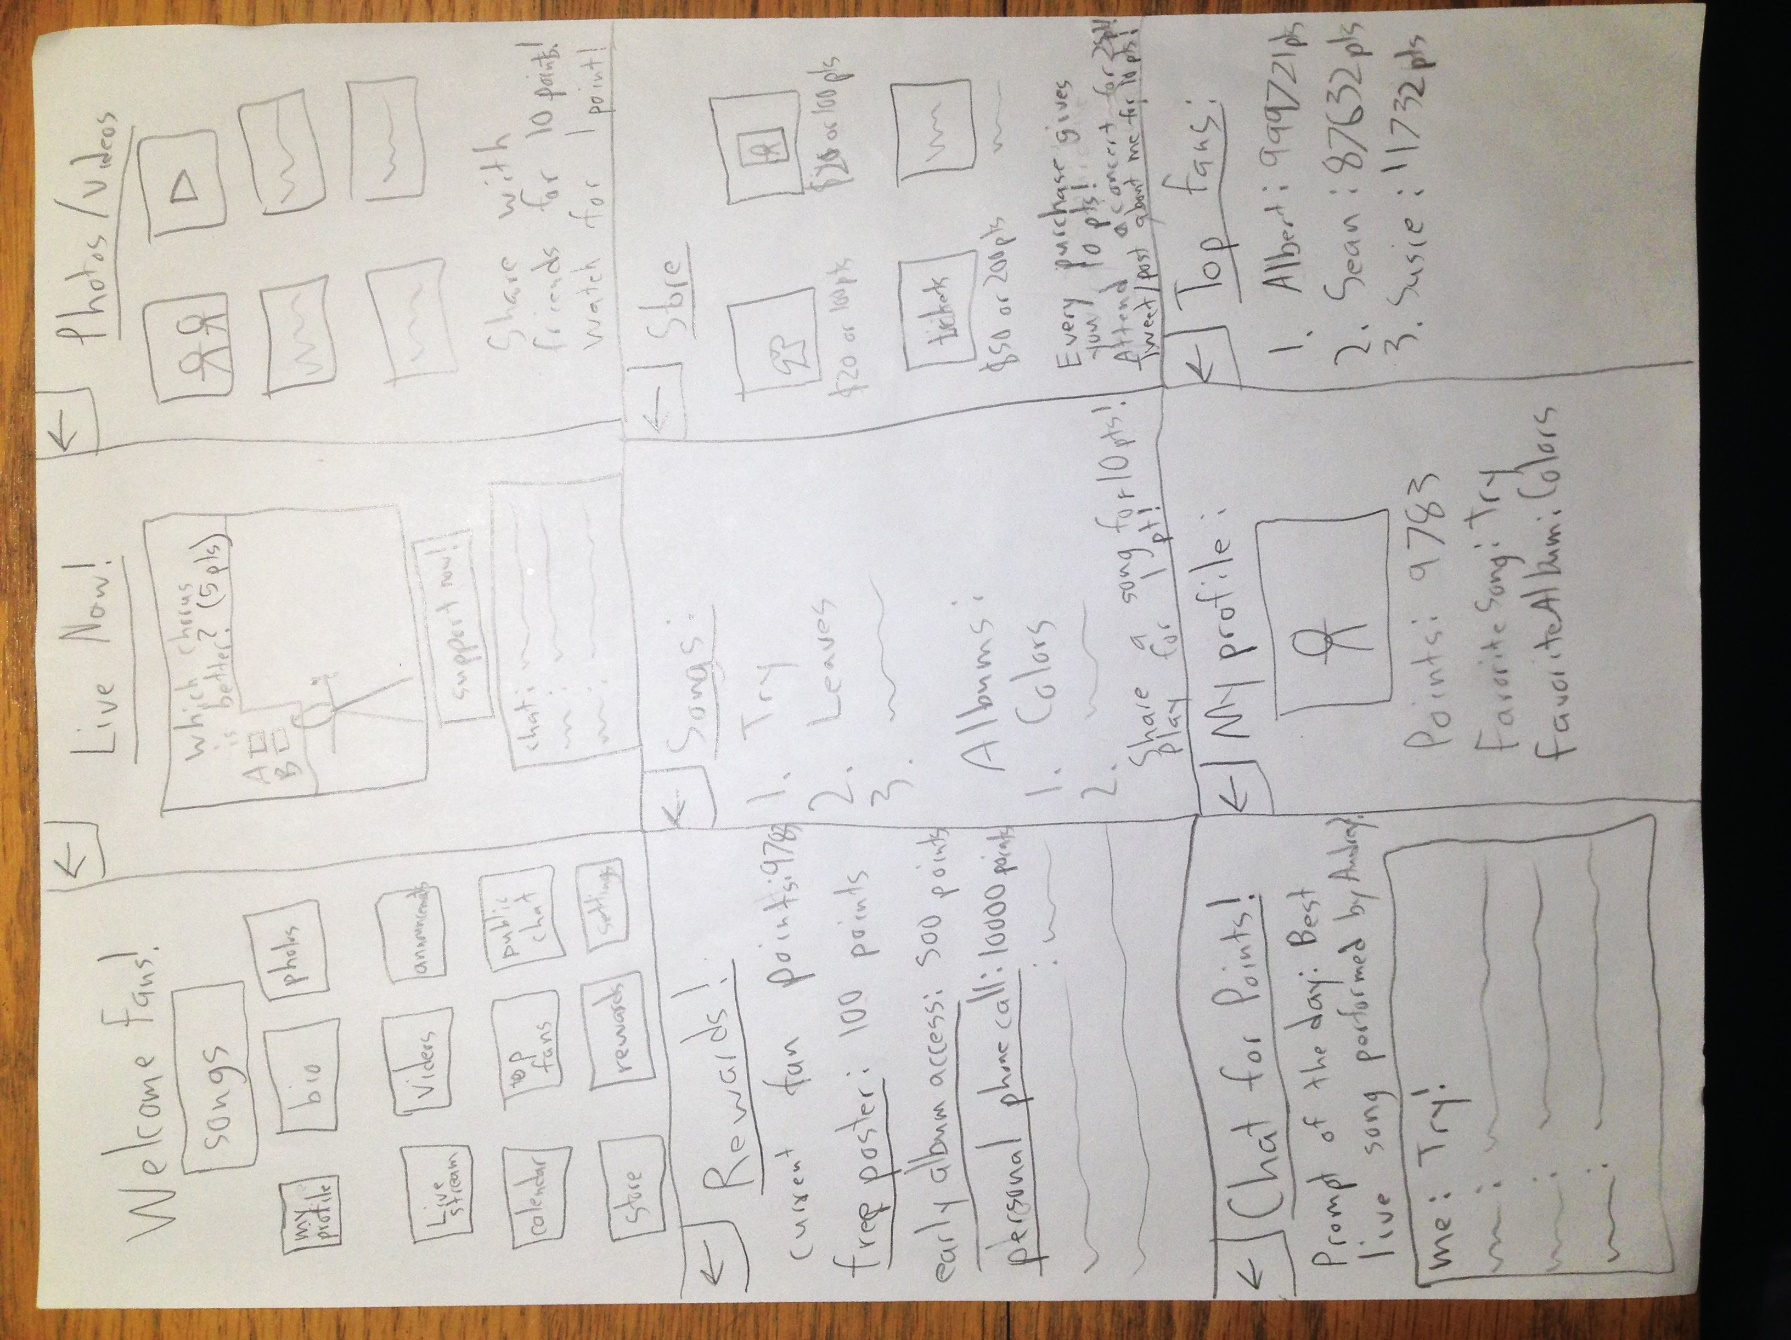 Welcome Fans!
songs
my profile
bio
photos
Live stream
Videos
announcements
calendar
top fans
public chat
store
rewards
settings
←
Live Now!
Which chorus
is better? (5 pts)
A
B
support now!
chat:
←
Photos/Videos
Share with
friends for 10 points!
Watch for 1 point!
←
Rewards!
current fan points: 9783
free poster: 100 points
early album access: 500 points
personal phone call: 10000 points
←
Songs:
1. Try
2. Leaves
3.
Albums:
1. Colors
2.
Share a song for 10 pts!
play for 1 pt!
←
Store
$20 or 100 pts
$20 or 100 pts
tickets
$50 or 200 pts
Every purchase gives
you 10 pts!
Attend a concert for 25 pt!
tweet/post about me for 10 pts!
←
Chat for Points!
Prompt of the day: Best
live song performed by Andrew?
me: Try!
←
My profile:
Points: 9783
Favorite Song: Try
Favorite Album: Colors
←
Top fans:
1. Albert: 99972 pts
2. Sean: 87632 pts
3. Susie: 11732 pts